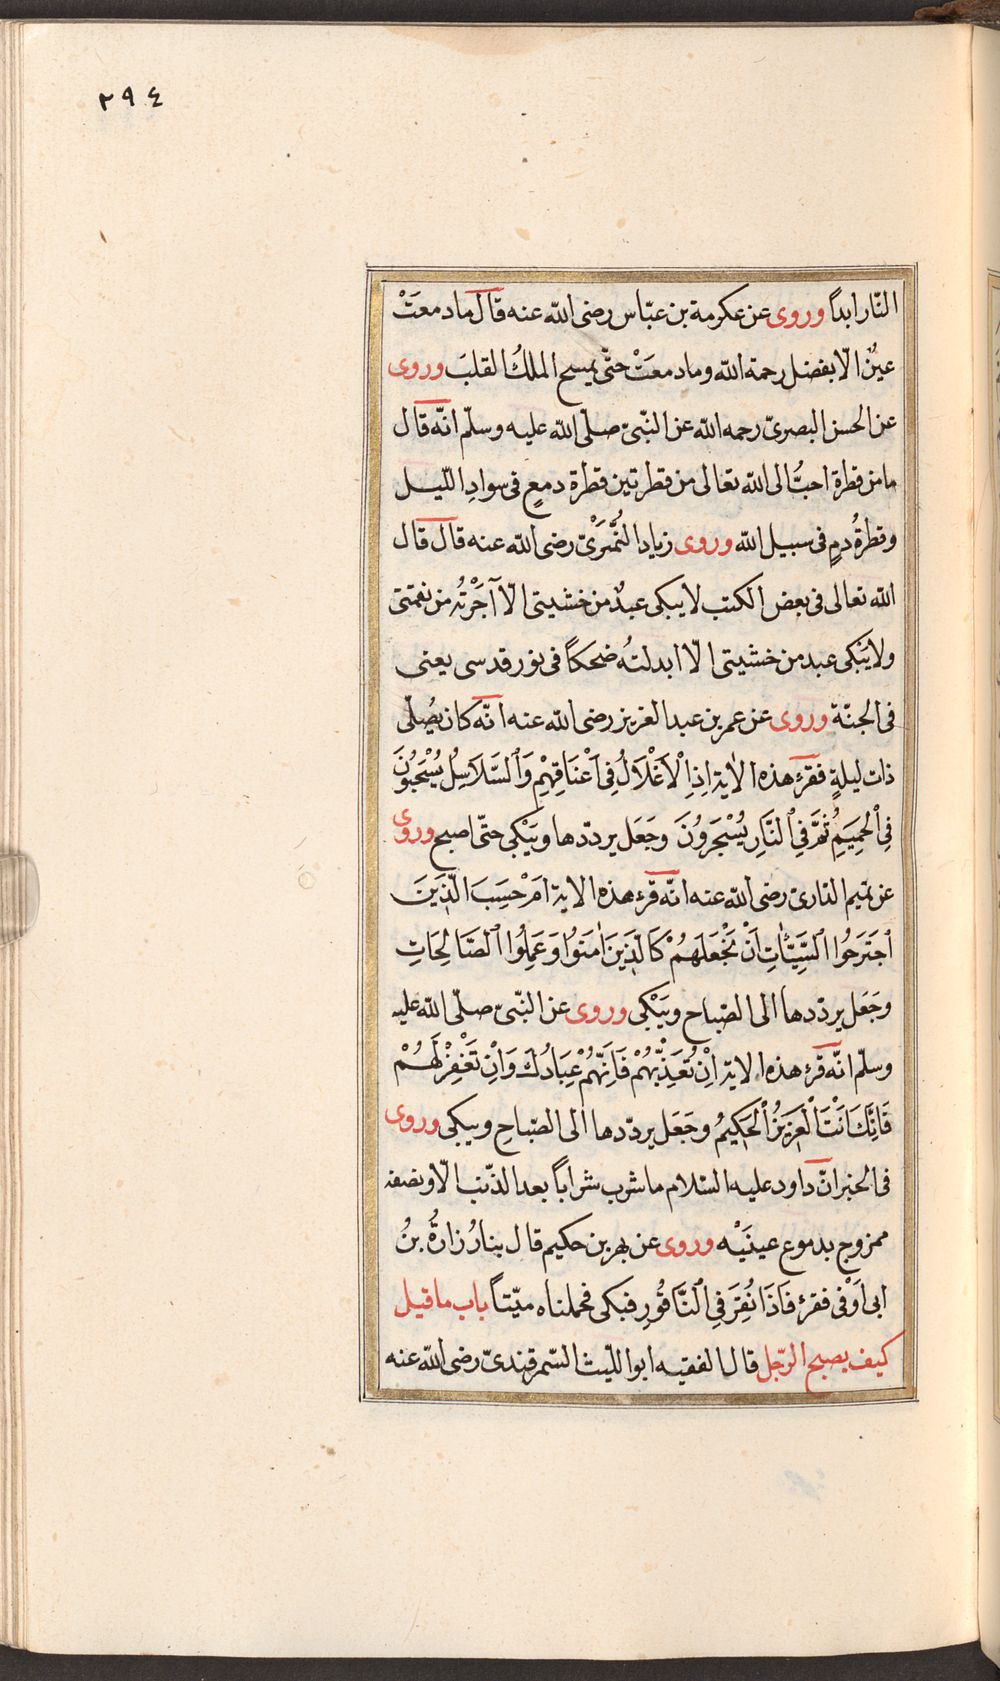 ٢٩٤
النّار ابداً وروى عن عكرمة بن عبّاس رضى الله عنه قال ما دمعَتْ
عينٌ الّا بفضل رحمة الله وما دمعَتْ حتّى يمسح الملكُ القلبَ وروى
عن الحسن البصرىّ رحمه الله عن النّبىّ صلّى الله عليه وسلّم انّه قال
ما من قطرة احبُّ الى الله تعالى من قطرتين قطرة دمعٍ فى سوادِ اللّيل
وقطرةُ دمٍ فى سبيل الله وروى زياد النُّمَيْرىّ رضى الله عنه قال قال
الله تعالى فى بعض الكتب لا يبكى عبدٌ من خشيتى الّا آجَرْتُه من نقمتى
ولا يَبْكى عبد من خشيتى الّا ابدلتُه ضحكاً فى نور قدسى يعنى
فى الجنّة وروى عن عمر بن عبد العزيز رضى الله عنه انّه كان يُصلّى
ذات ليلةٍ فقرء هذه الاية اِذِ الْاَغْلَالُ فِى اَعْنَاقِهِمْ وَالسَّلَاسِلُ يُسْحَبُونَ
فِى الْحَمِيمِ ثُمَّ فِى النَّارِ يُسْجَرُونَ وجَعَل يردّدها ويَبْكى حتّى اصبح وروى
عن تميم الدّارىّ رضى الله عنه انّه قرء هذه الاية اَمْ حَسِبَ الَّذِينَ
اجْتَرَحُوا السَّيِّئَاتِ اَنْ نَجْعَلَهُمْ كَالَّذِينَ اٰمَنُوا وَعَمِلُوا الصَّالِحَاتِ
وجَعَل يردّدها الى الصّباح ويَبْكى وروى عن النّبىّ صلّى الله عليه
وسلّم انّه قرء هذه الاية اِنْ تُعَذِّبْهُمْ فَاِنَّهُمْ عِبَادُكَ وَاِنْ تَغْفِرْ لَهُمْ
فَاِنَّكَ اَنْتَ الْعَزِيزُ الْحَكِيمُ وجَعَل يردّدها الى الصّباحِ ويبكى وروى
فى الخبر انّ داود عليه السّلام ما شرب شراباً بعد الذّنب الّا ونصفه
ممزوج بدموع عينَيْه وروى عن بهر بن حكيم قال بنا زُرارةُ بنُ
ابى اَوْفى فقرء فَاذَا نُقِرَ فِى النَّاقُورِ فبكى فحملناه ميّتاً باب ما قيل
كيف يصبح الرّجل قال الفقيه ابو اللّيث السّمرقندىّ رضى الله عنه